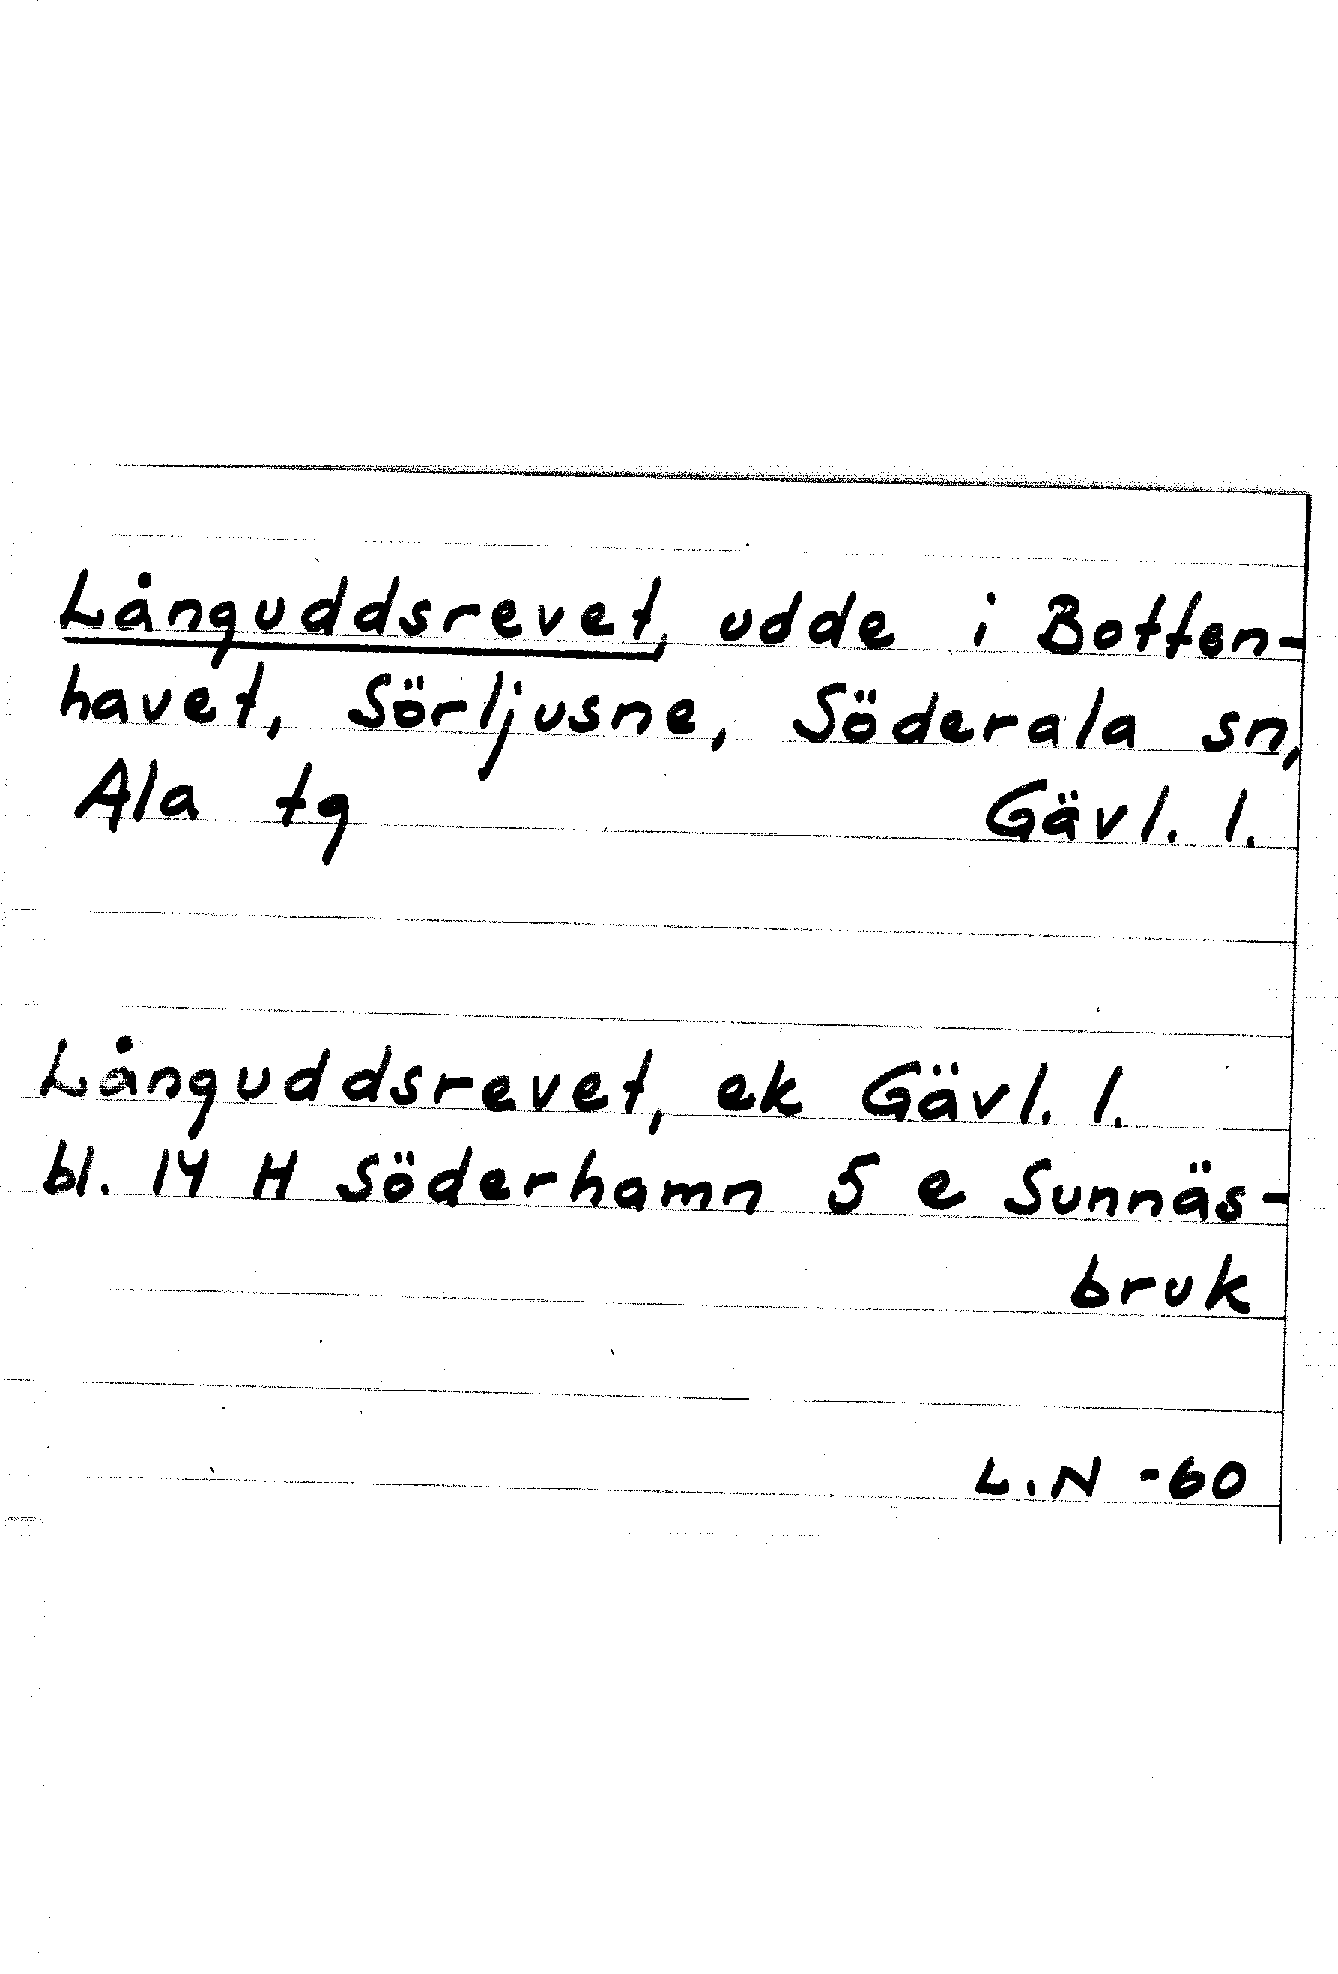 Långuddsrevet, udde i Botten-
havet, Sörljusne, Söderala sn,
Ala tg Gävl. l.
Långuddsrevet, ek Gävl. l.
bl. 14 H Söderhamn 5 e Sunnäs-
bruk
L.N -60